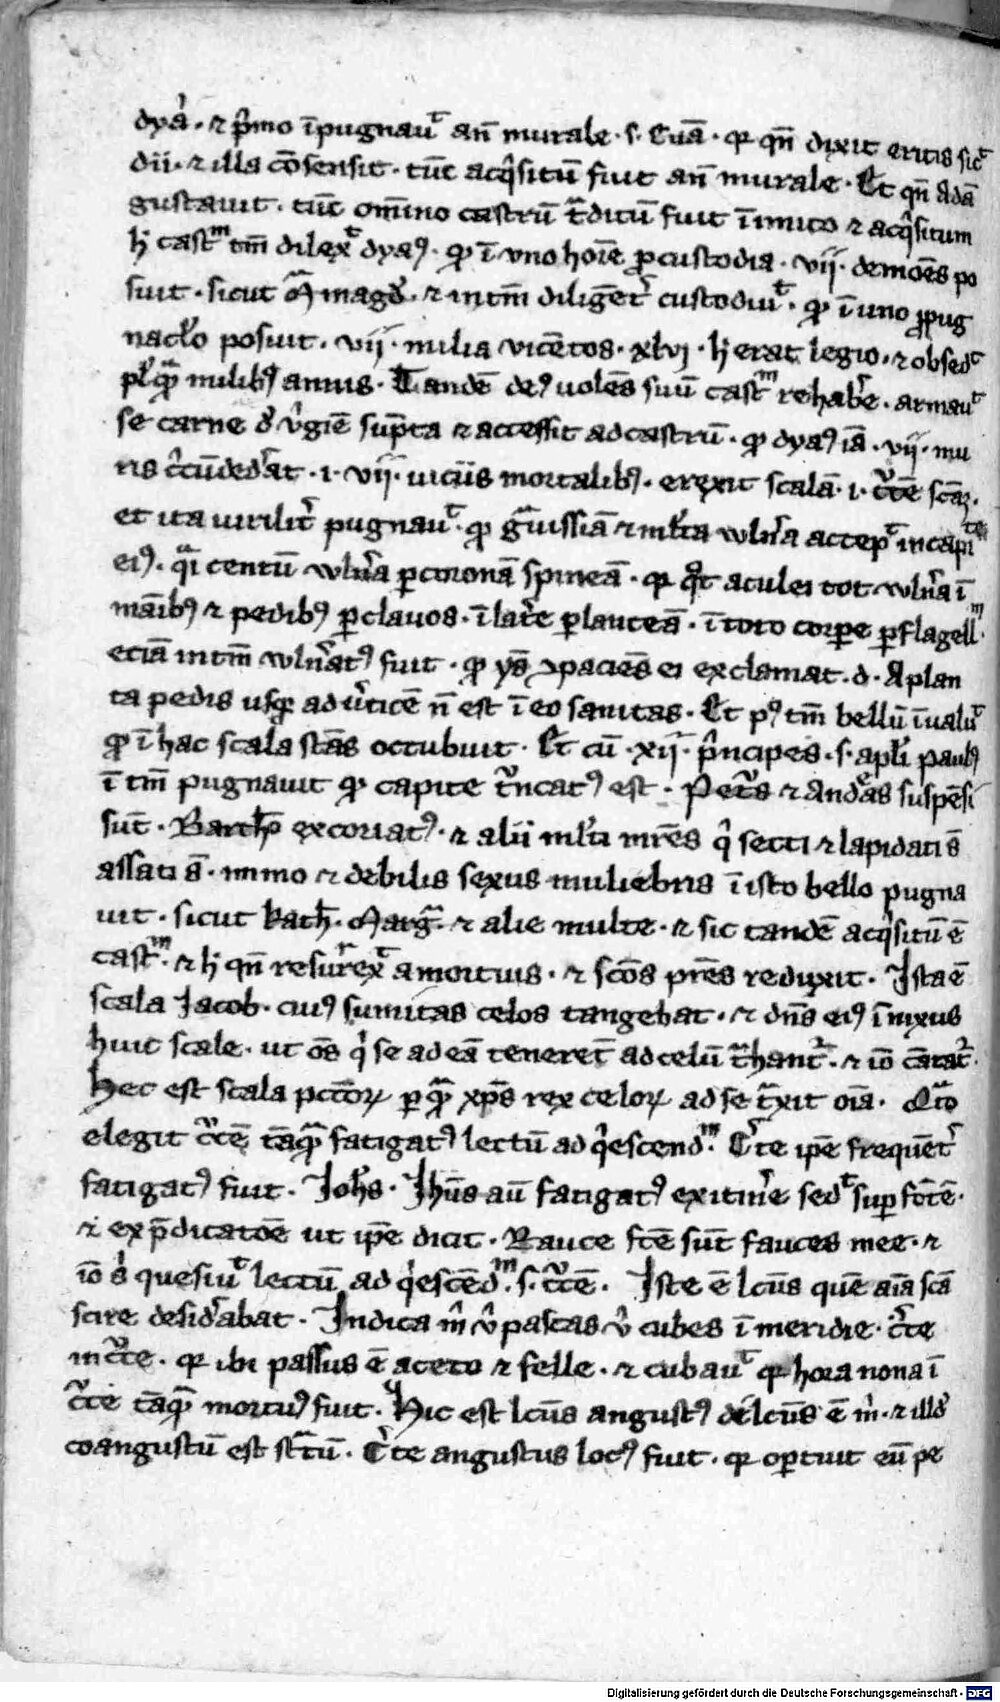 dyaꝰ · ⁊ p̄mo īpugnauͭ an̄ murale · s · Euā · ꝙ qn̄ dixit eritis sicͭ
dii · ⁊ illa cōsensit · tūc acq̄situ̅ fuit an̄ murale · Et qn̄ Adā
gustauit · tūc om̄ino castrū t̄ditū fuit īimico ⁊ acq̄situm
h̄ castͫ tm̄ dilexͭ dyaꝰ · ꝙ ī vno hoīe ꝓ custodia · vii · demōes po
suit · sicut Mͣ magd̄ · ⁊ intm̄ diligēt̄ custodiuͭ · ꝙ ī uno ꝓpug
nacl̄o posuit · vii · milia vicētos · xlvj · h̄ erat legio · ⁊ obsedͭ
pl̄qͣ̄ milibꝰ annis · Tandē deꝰ uolēs suū castͫ rehab̄e · armauͭ
se carne d̄ v̄gīe sūpta ⁊ accessit ad castrū · ꝙ dyaꝰ iā · vii · mu
ris c̄cūded̄at · i · vii · uiciis mortalibꝰ · erexit scalā · i · c̄cē scāꝫ ·
et ita uirilit̄ pugnauͭ · ꝙ gͣuissiā ⁊ ml̄ta wln̄a accepͭ in capi te
eiꝰ · qͣi centū wln̄a ꝑ coronā spineā · ꝙ qͦt aculei tot wln̄a ī
māibꝰ ⁊ pedibꝰ ꝑ clauos · ī lat̄e ꝑ lanceā · ī toto corꝑe ꝑ flagellͫ ·
eciā intm̄ wln̄atꝰ fuit · ꝙ ys̄ ꝯpaciēs ei exclamat · d · A plan
ta pedis usꝙ ad v̄ticē n̄ est ī eo sanitas · Et pꝰ tm̄ bellū īualuͭ
ꝙ ī hac scala stās occubuit · Et cū · xii · p̄ncipes · s · apl̄i paulꝰ
ī tm̄ pugnauit ꝙ capite tͮncatꝰ est · Petͮs ⁊ andͤas suspēsi
sūt · Barth̄o excoriatꝰ · ⁊ alii ml̄ti mr̄es q̄ secti ⁊ lapidati s̄
assati s̄ · immo ⁊ debilis sexus muliebris ī isto bello pugna
uit · sicut kath̄ · Margͣ · ⁊ alie multe · ⁊ sic tandē acq̄situ̅ ē
castͫ · ⁊ h̄ qn̄ resurrexͭ a mortuis · ⁊ scōs pr̄es reduxit · Ista ē
scala Jacob · cuiꝰ sumitas celos tangebat · ⁊ dn̄s eiꝰ īnixus
huit scale · ut ōs q̄ se ad eā teneret̄ ad celū tͣhant̄ · ⁊ iō cātat̄ ·
Hec est scala pctōꝝ ꝑ qͣ̄ xp̄s rex celoꝝ ad se tͣxit oīa · Qͣto
elegit c̄cē tāqͣ̄ fatigatꝰ lectū ad q̄escendͫ · C̄te ipē frequēt̄
fatigatꝰ fuit · Joh̄s · Jh̄us aū fatigatꝰ ex itin̄e sedͭ sup fōtē ·
⁊ ex p̄dicatōe ut ipē dicit · Rauce fc̄e sūt fauces mee · ⁊
iō s̄ quesiuͭ lectū ad q̄escēdͫ · s · c̄cē · Iste ē lcūs quē aīa scā
scire desid̄abat · Indica m̄ v̄ pascas v̄ cubes ī meridie · c̄te
in c̄ce · ꝙ ibi passus ē aceto ⁊ felle · ⁊ cubauͭ ꝙ hora nona ī
c̄ce tāqͣ̄ mortuꝰ fuit · Hic est lcūs angustꝰ d̄ lcūs ē m̄ · ⁊ illd̄
coangustū est stͣtū · C̄te angustus locꝰ fuit · ꝙ oꝑtuit eū pe
Digitalisierung gefördert durch die Deutsche Forschungsgemeinschaft - DFG